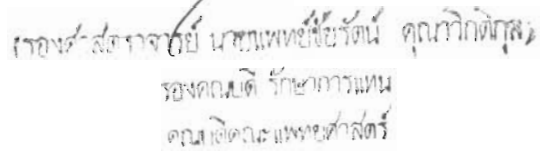 (รองศาสตราจารย์ นายแพทย์ชัยรัตน์ คุณาวิกติกุล)
รองคณบดี รักษาการแทน
คณบดีคณะแพทยศาสตร์